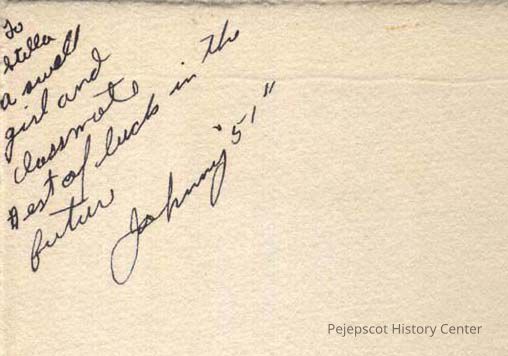 To
Stella
a swell
girl and
classmate
Best of luck in the
future
Johnny "51"
Pejepscot History Center